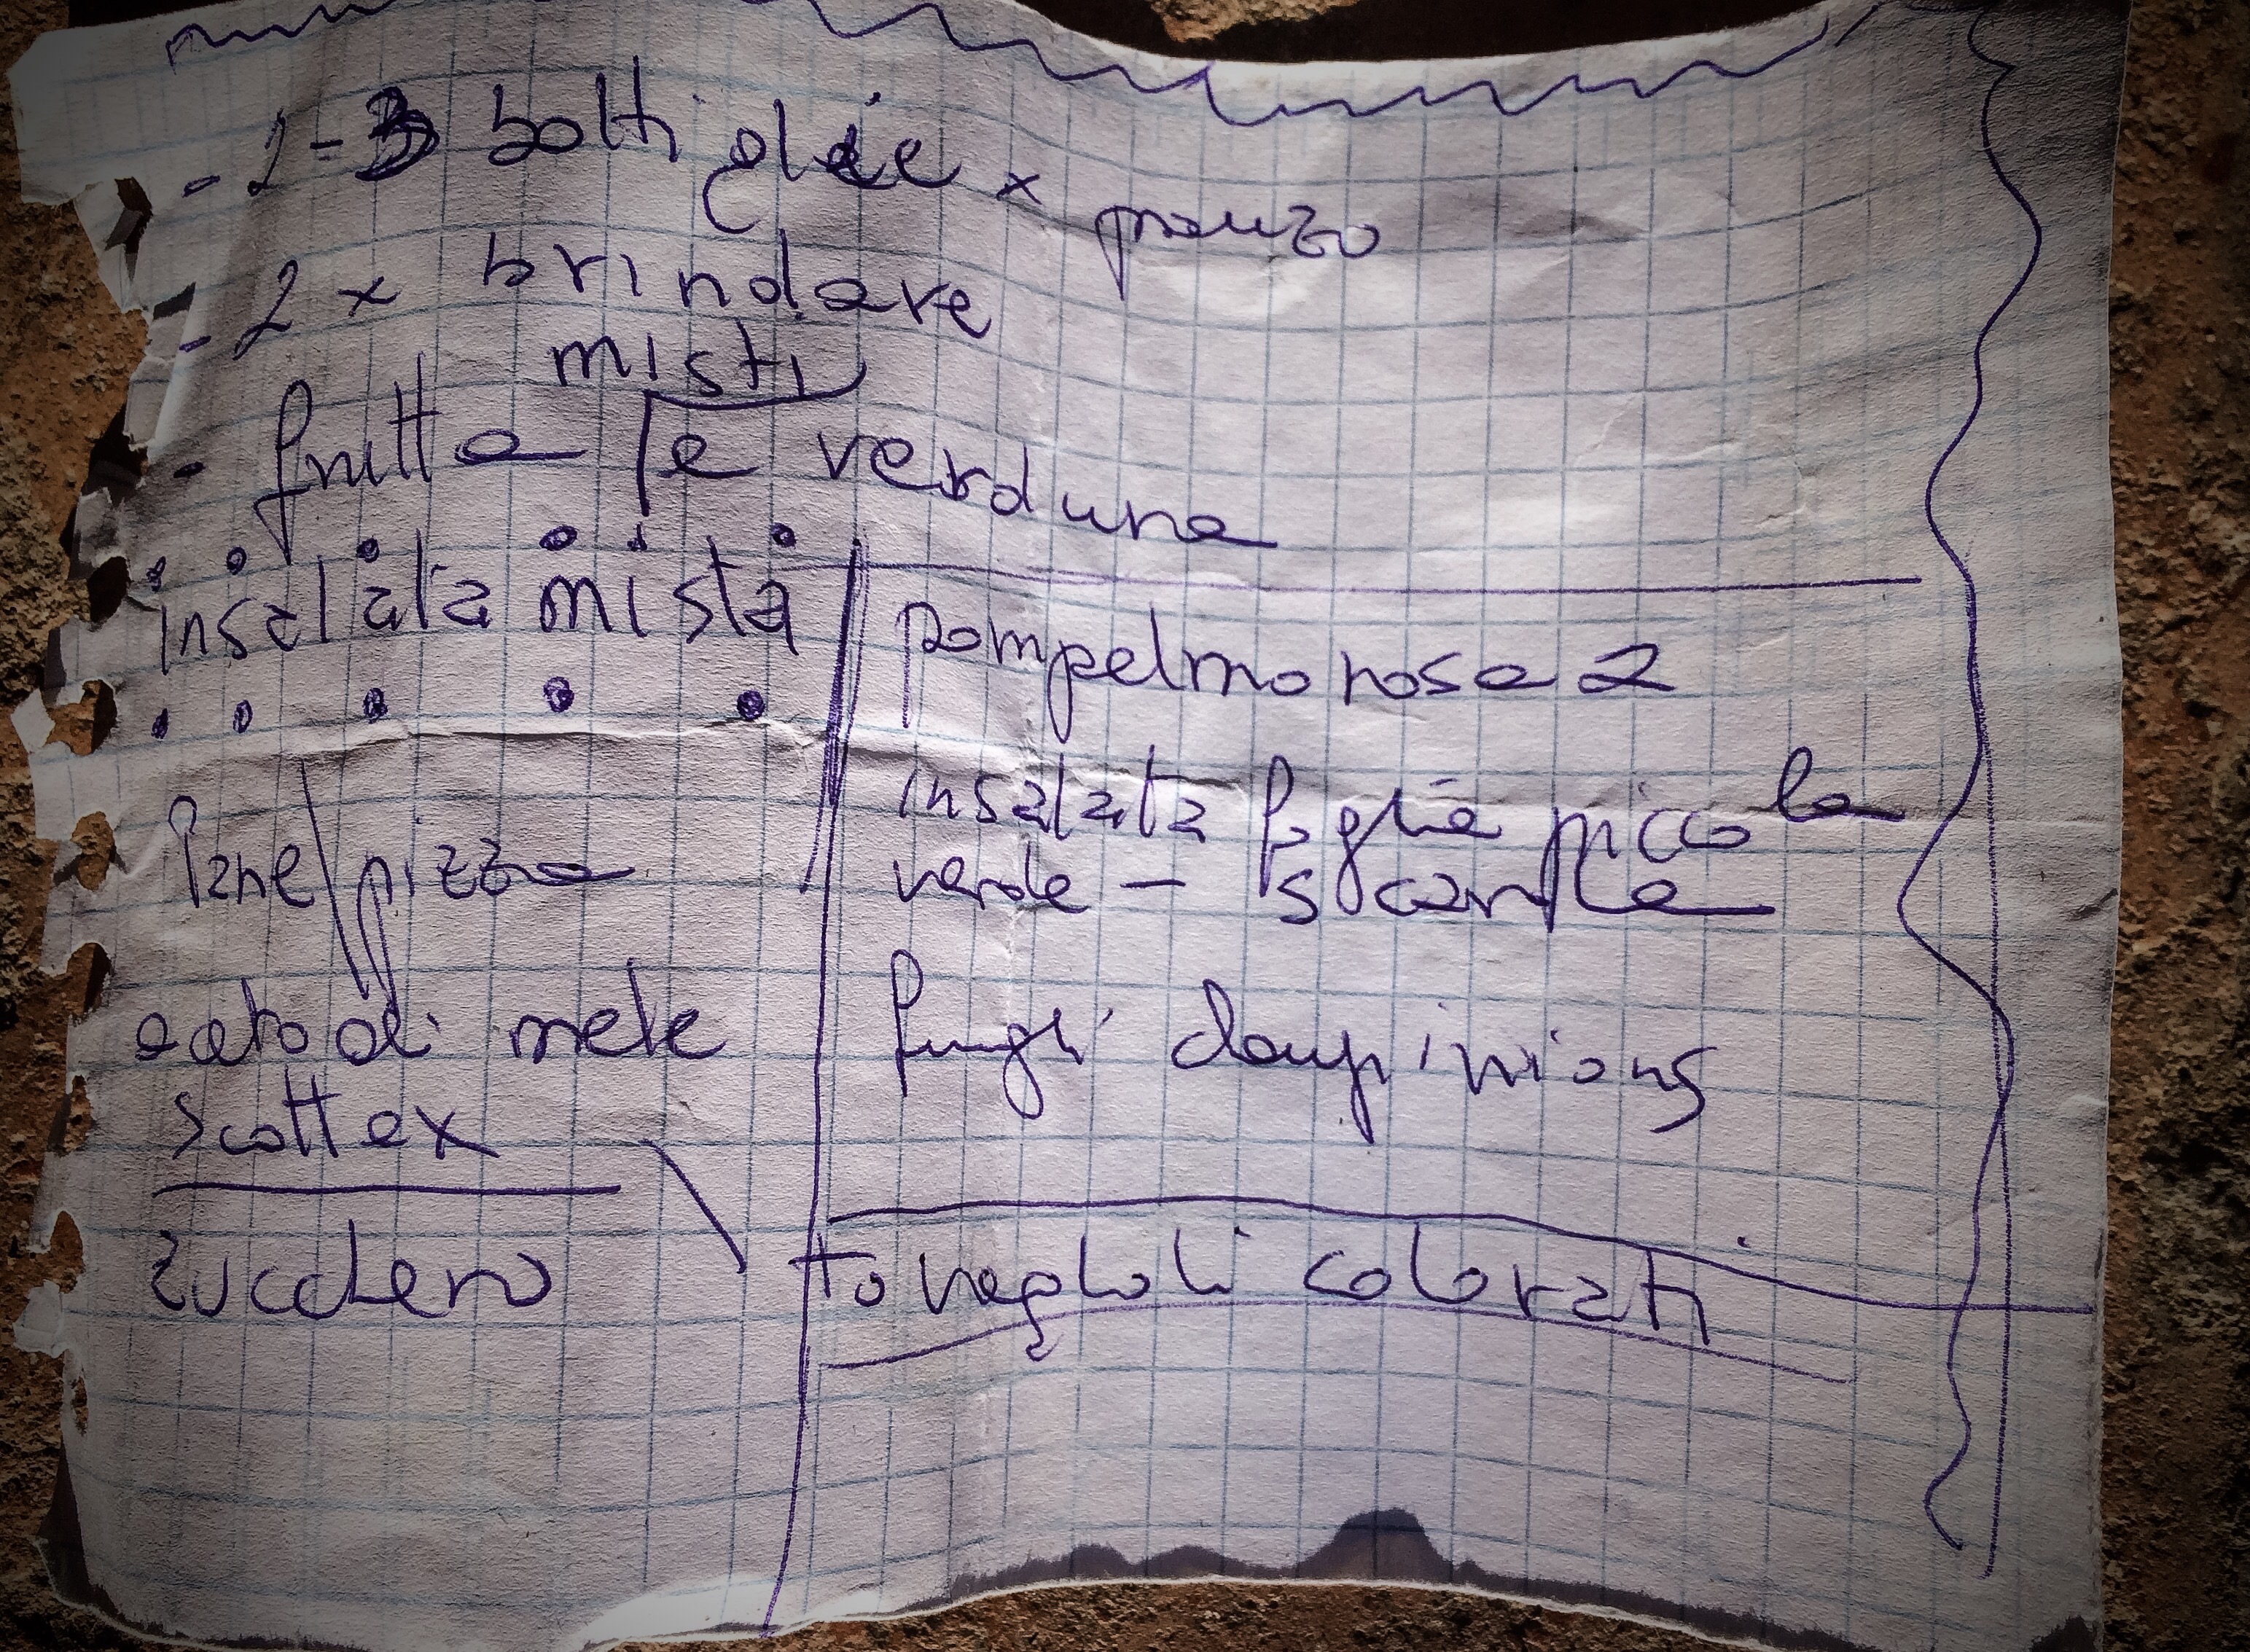 - 2-3 bottiglie x pranzo
- 2 x brindare
misti
- frutta e verdura
insalata mista
Pane/pizza
aceto di mele
scottex
zucchero
pompelmo rosa 2
insalata foglia piccola
verde - scarola
funghi
tovaglioli colorati